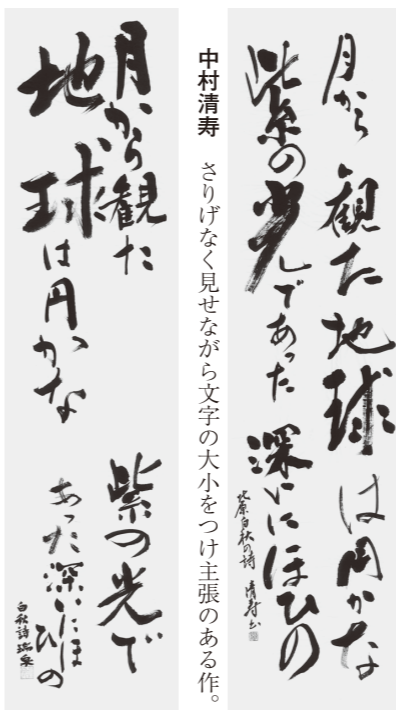 月から観た地球は円かな
紫の光であった 深いにほひの
北原白秋の詩 清寿書
中村清寿 さりげなく見せながら文字の大小をつけ主張のある作。
月から観た
地球は円かな
紫の光で
あった深いにほひの
白秋詩